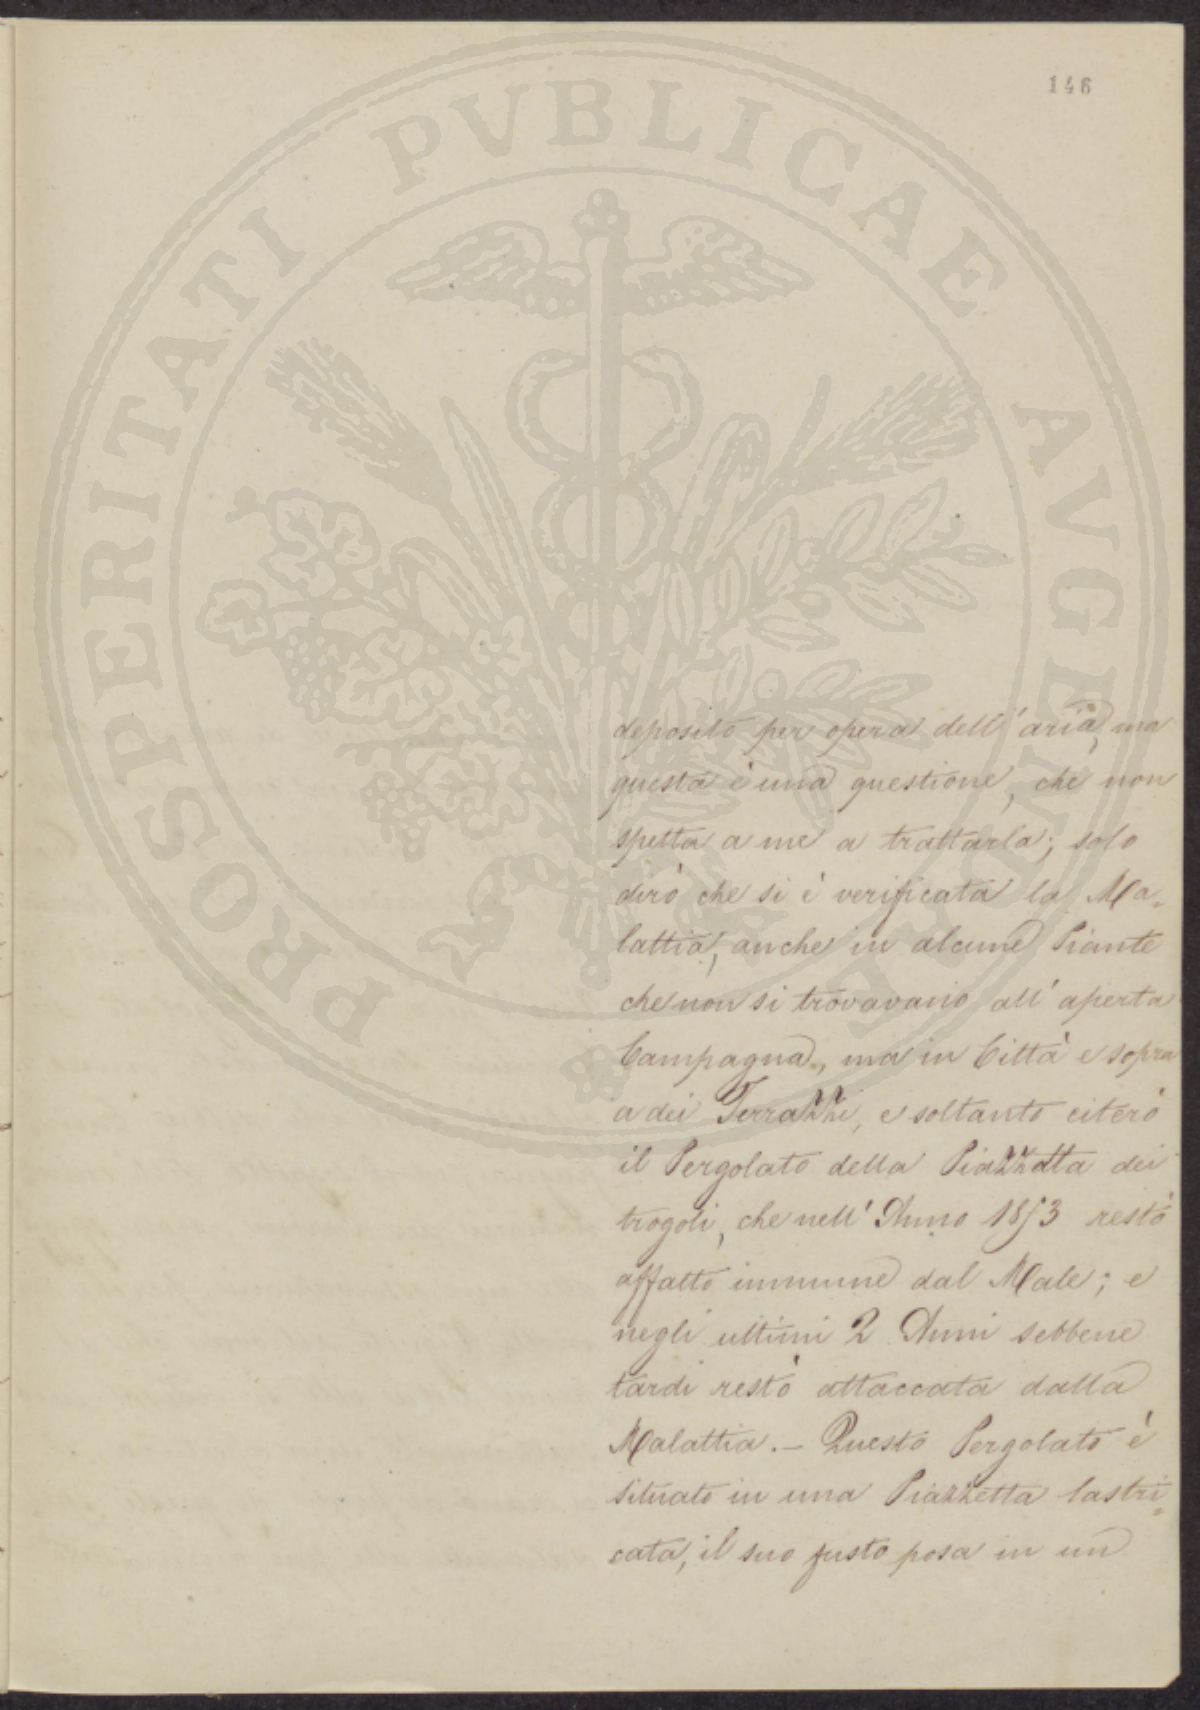 146
PROSPERITATI PVBLICAE AVGENDAE
deposito per opera dell'aria, ma
questa è una questione, che non
spetta a me a trattarla; solo
dirò che si è verificata la Ma=
lattia, anche in alcune Piante
che non si trovavano all'aperta
Campagna, ma in Città e sopra
a dei Terrazzi, e soltanto citerò
il Pergolato della Piazzetta dei
trogoli, che nell'Anno 1853 restò
affatto immune dal Male; e
negli ultimi 2 Anni sebbene
tardi restò attaccata dalla
Malattia. – Questo Pergolato è
situato in una Piazzetta lastri=
cata, il suo fusto posa in un